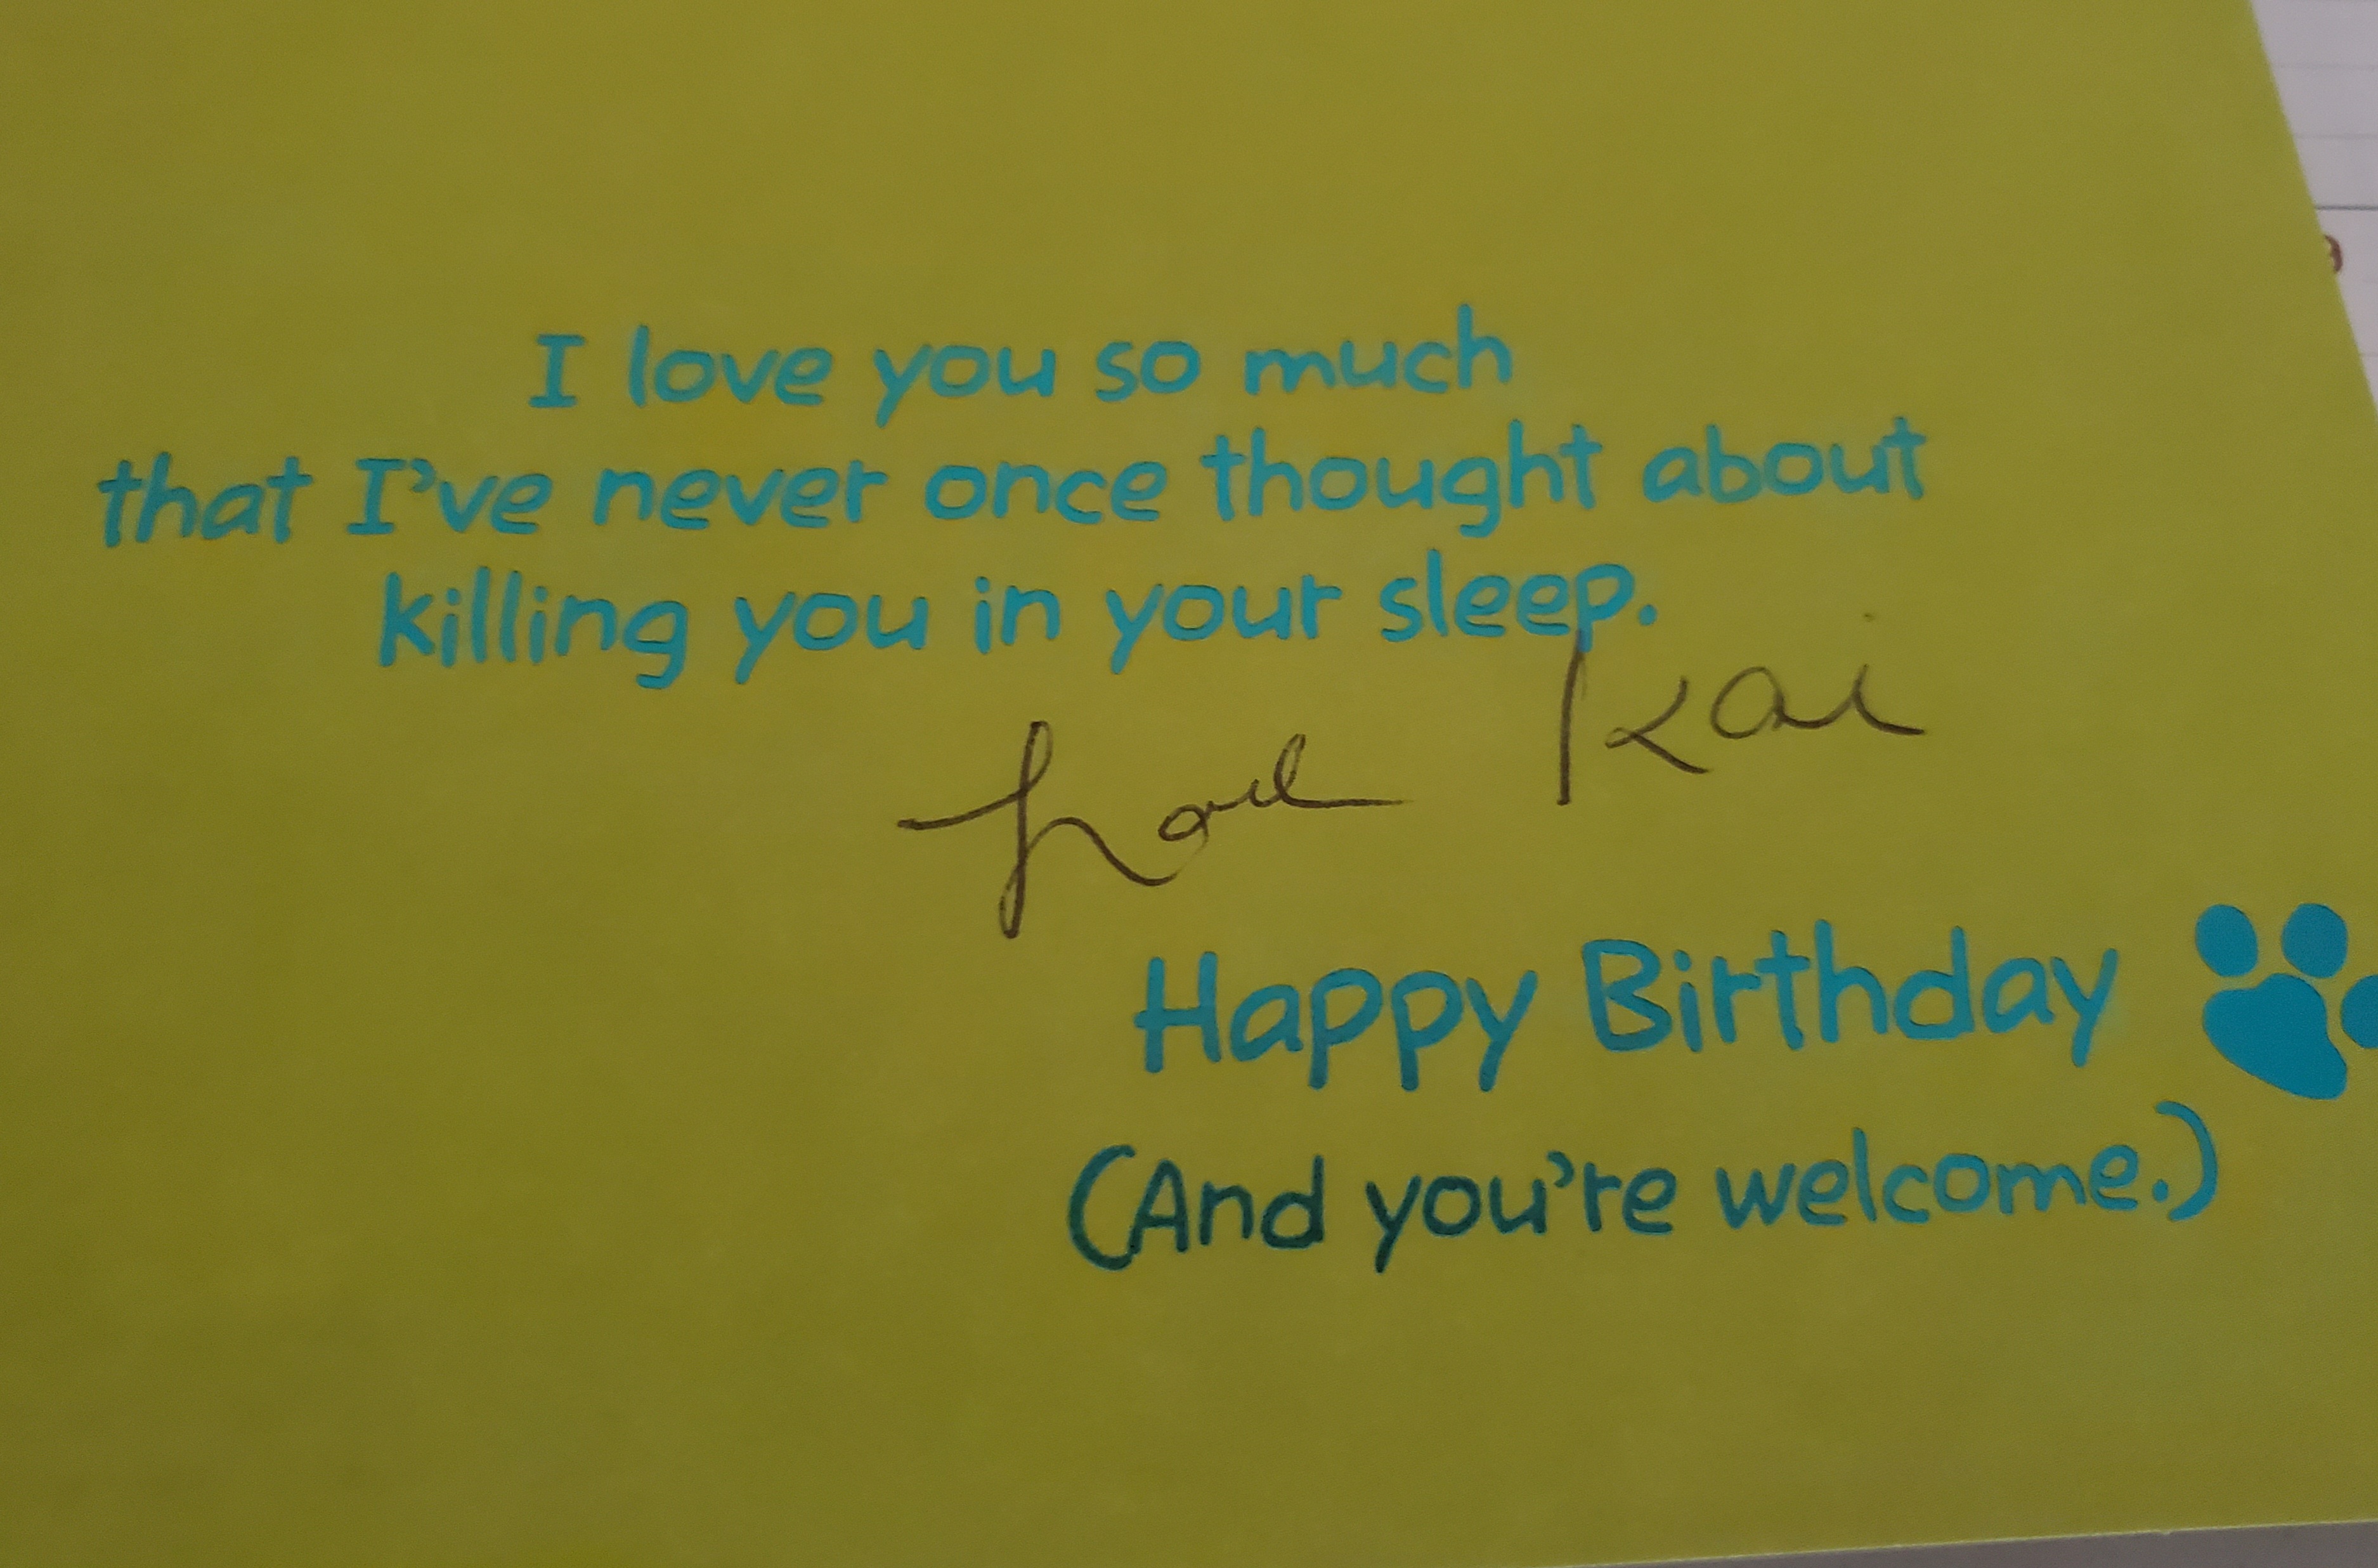 I love you so much
that I've never once thought about
killing you in your sleep.
Love Kai
Happy Birthday
(And you're welcome.)